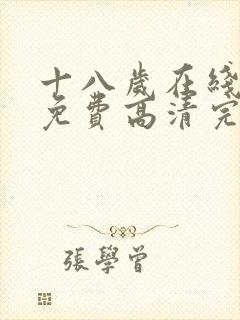 十八歲在綫
免費高清完
張學曾